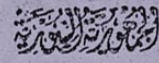 الجمهورية السورية